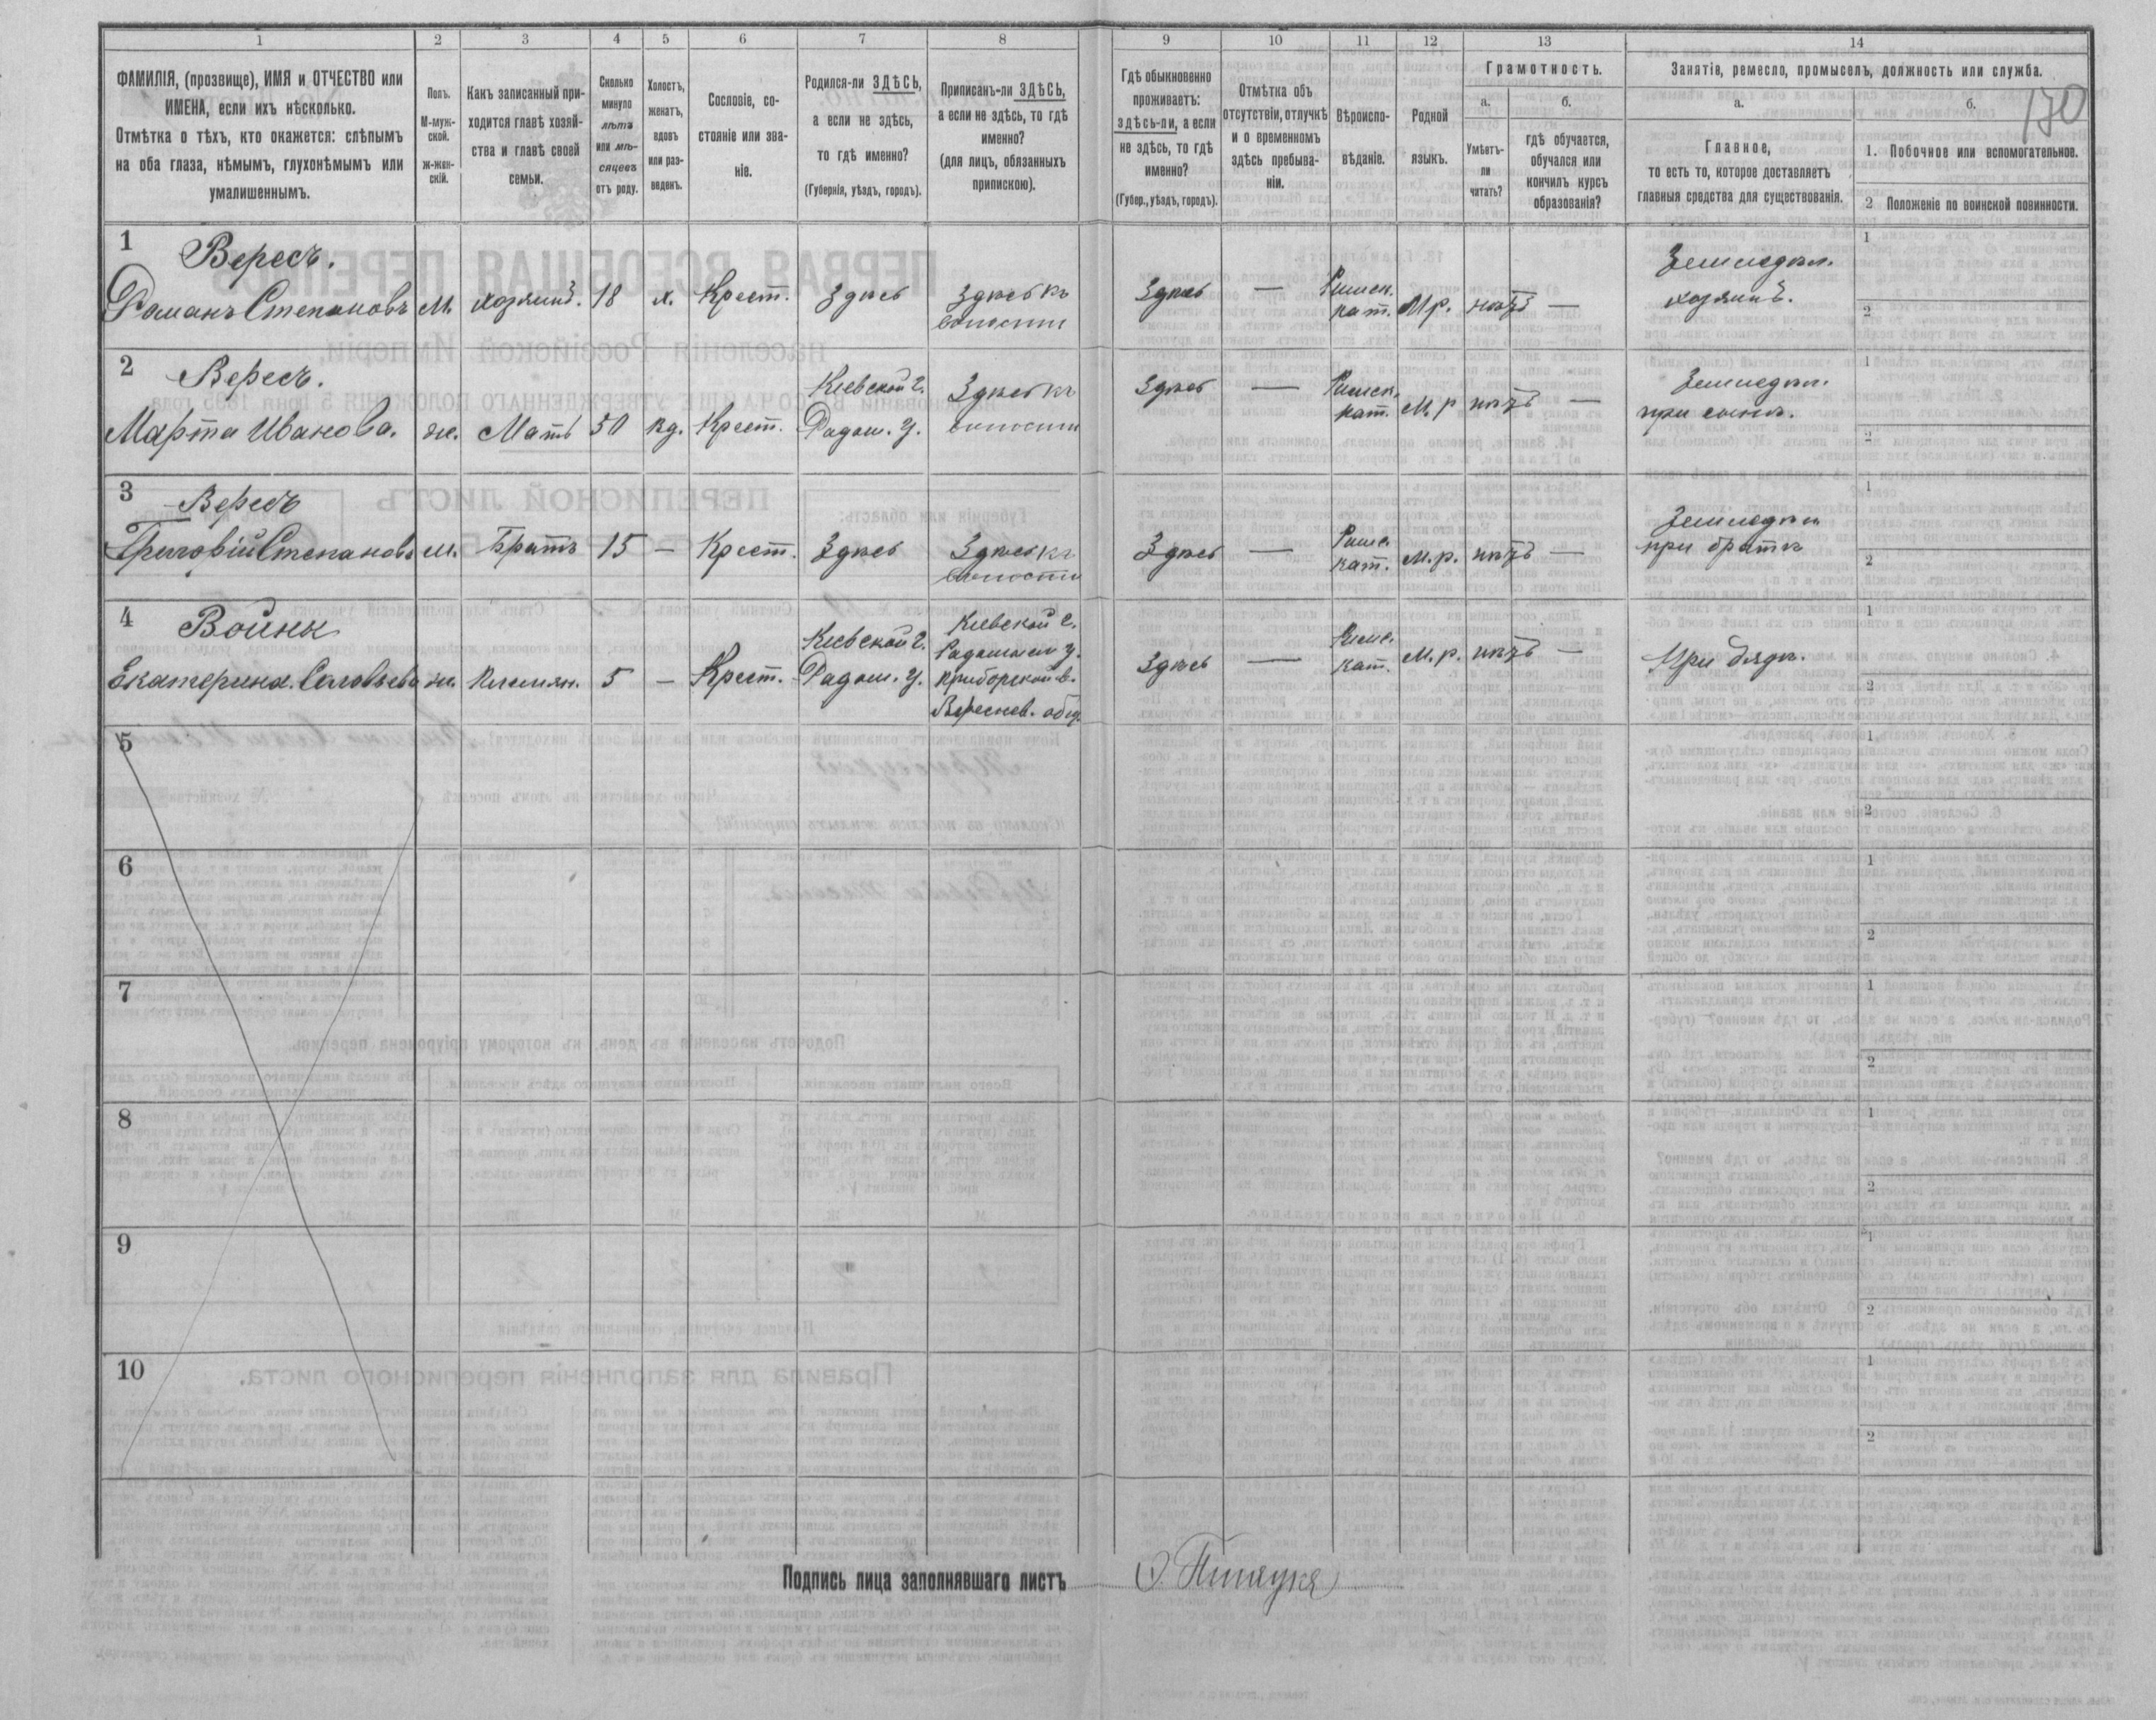 1 2 3 4 5 6 7 8 9 10 11 12 13 14
ФАМИЛІЯ, (прозвище), ИМЯ и ОТЧЕСТВО или
ИМЕНА, если ихъ нѣсколько.
Отмѣтка о тѣхъ, кто окажется: слѣпымъ
на оба глаза, нѣмымъ, глухонѣмымъ или
умалишеннымъ.
Полъ.
М-муж-
ской.
Ж-жен-
скій.
Какъ записанный при-
ходится главѣ хозяй-
ства и главѣ своей
семьи.
Сколько
минуло
лѣтъ
или мѣ-
сяцевъ
отъ роду.
Холостъ,
женатъ,
вдовъ
или раз-
веденъ.
Сословіе, со-
стояніе или зва-
ніе.
Родился-ли ЗДѢСЬ,
а если не здѣсь,
то гдѣ именно?
(Губернія, уѣздъ, городъ).
Приписанъ-ли ЗДѢСЬ,
а если не здѣсь, то гдѣ
именно?
(для лицъ, обязанныхъ
припискою).
Гдѣ обыкновенно
проживаетъ:
здѣсь-ли, а если
не здѣсь, то гдѣ
именно?
(Губер., уѣздъ, городъ).
Отмѣтка объ
отсутствіи, отлучкѣ
и о временномъ
здѣсь пребыва-
ніи.
Вѣроиспо-
вѣданіе.
Родной
языкъ.
Грамотность.
а.
Умѣетъ-
ли
читать?
б.
гдѣ обучается,
обучался или
кончилъ курсъ
образованія?
Занятіе, ремесло, промыселъ, должность или служба.
а.
Главное,
то есть то, которое доставляетъ
главныя средства для существованія.
б.
170
1. Побочное или вспомогательное.
2 Положеніе по воинской повинности.
1
Вересъ.
Романъ Степановъ
М.
хозяинъ.
18
х.
Крест.
Здѣсь
Здѣсь къ
волости
Здѣсь
—
Римск.
кат.
М.р.
нѣтъ
—
Земледѣл.
хозяинъ.
1
2
2
Вересъ.
Марта Иванова.
ж.
Мать
50
вд.
Крест.
Кіевской г.
Радом. у.
Здѣсь къ
волости
Здѣсь
—
Римск.
кат.
М.р
нѣтъ
—
Земледѣл.
при сынѣ.
1
2
3
Вересъ
Григорій Степановъ
м.
Братъ
15
—
Крест.
Здѣсь
Здѣсь къ
волости
Здѣсь
—
Римс.
кат.
М.р.
нѣтъ
—
Земледѣл
при братѣ
1
2
4
Екатерина Соловьева
ж.
Племян.
5
—
Крест.
Кіевской г.
Радом. у.
Кіевской г.
Радомыс. у.
Приборской в.
Вереснев. общ.
Здѣсь
—
Римс.
кат.
М.р.
нѣтъ
—
При дядѣ.
1
2
5
1
2
6
1
2
7
1
2
8
1
2
9
1
2
10
1
2
Подпись лица заполнявшаго листъ